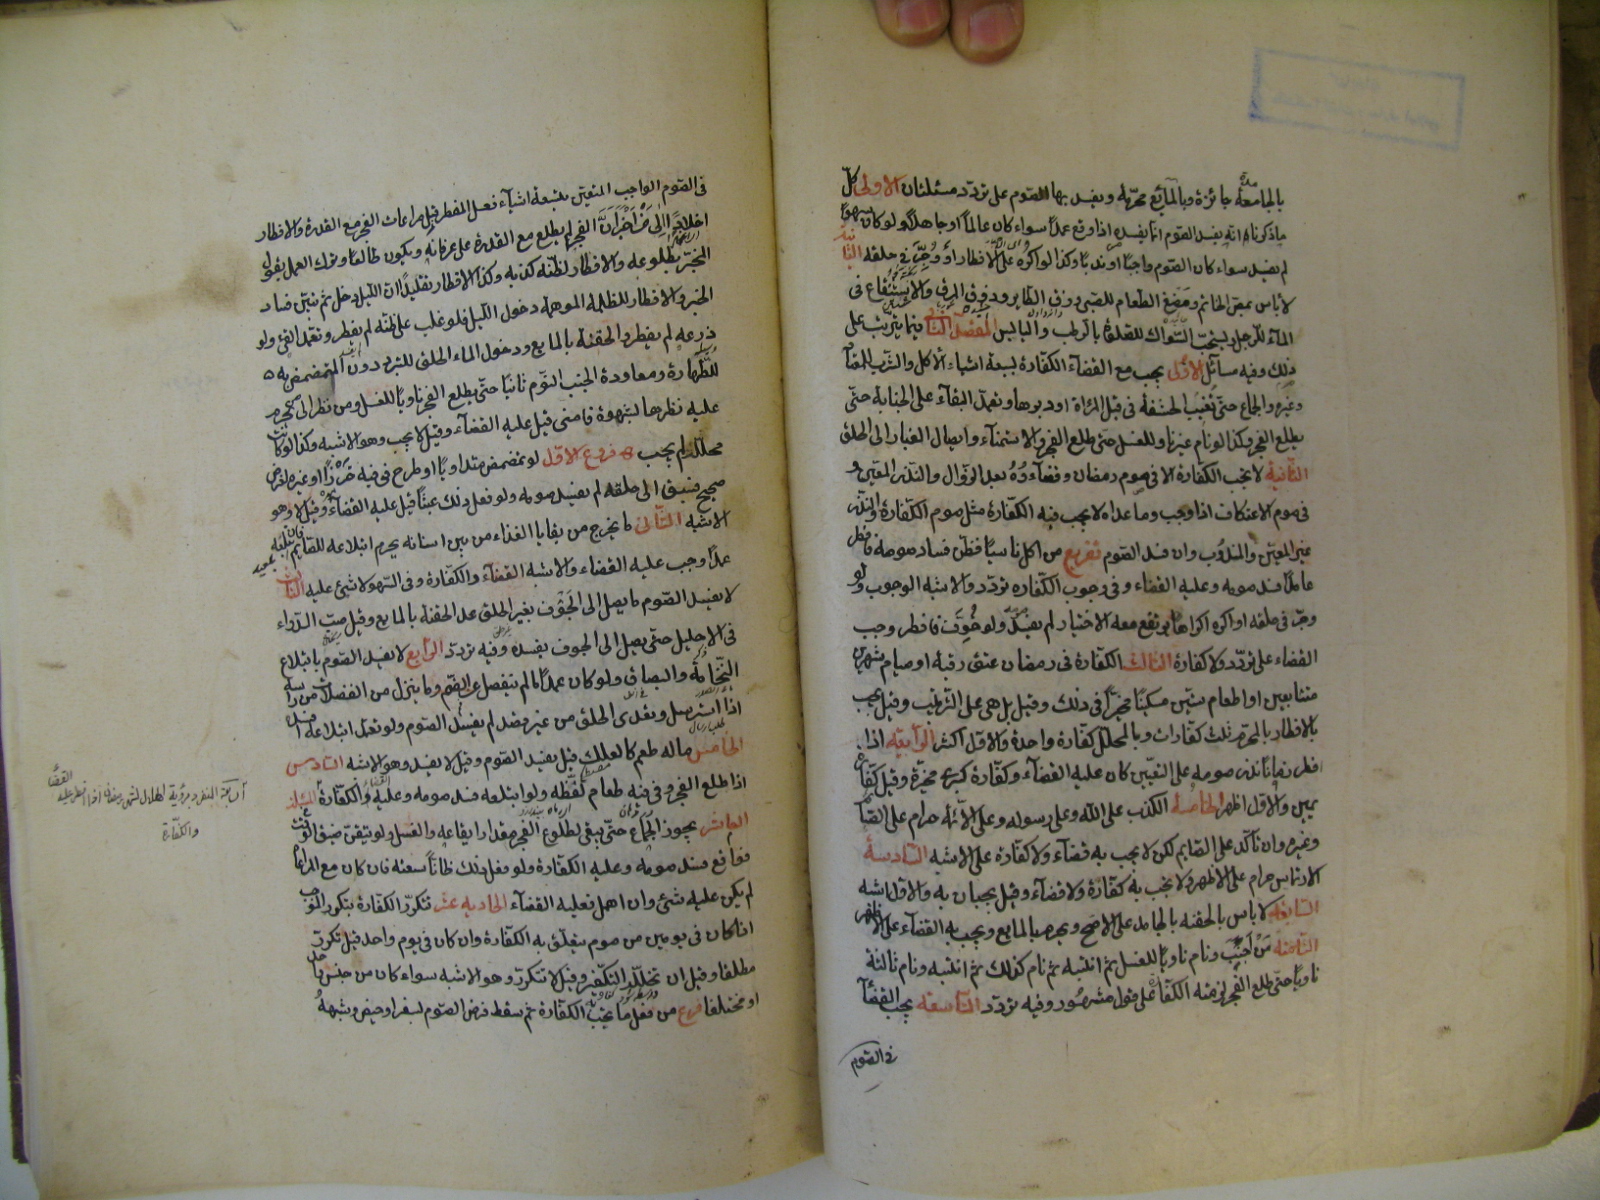 بالجامعة جائزة وبالمايع محرمة ويفسد بها الصوم على تردد مسئلتان الاولى كل
ماذكرنا انه يفسد الصوم انما يفسده اذا وقع عمدا سواء كان عالما او جاهلا ولو كان سهوا
لم يفسد سواء كان الصوم واجبا او ندبا وكذا لو اكره على الافطار او وجر في حلقه الثانيه
لا باس بمص الخاتم ومضغ الطعام للصبى وزق الطاير وذوق المرق والاستنقاع فى
الماء للرجل ويستحب السواك للصلاة بالرطب واليابس المقصد الثانى فيما يترتب على
ذلك وفيه مسائل الاولى يجب مع القضاء الكفارة بسبعة اشياء الاكل والشرب المعتاد
وغيره والجماع حتى تغيب الحشفة فى قبل المرأة او دبرها وتعمد البقاء على الجنابة حتى
يطلع الفجر وكذا لو نام غير ناو للغسل حتى طلع الفجر والاستمناء وايصال الغبار الى الحلق
الثانية لا تجب الكفارة الا فى صوم رمضان وقضاءه بعد الزوال والنذر المعين و
فى صوم الاعتكاف اذا وجب وما عداه لا يجب فيه الكفارة مثل صوم الكفارة والنذر
غير المعين والمندوب وان فسد الصوم تفريع من اكل ناسيا فظن فساد صومه فافطر
عامدا فسد صومه وعليه القضاء وفى وجوب الكفاره تردد والاشبه الوجوب ولو
وجر فى حلقه او اكره اكراها يرتفع معه الاختيار لم يفسد ولو خوف فافطر وجب
القضاء على تردد ولا كفارة الثالث الكفارة فى رمضان عتق رقبة او صيام شهرين
متتابعين او اطعام ستين مسكينا مخيرا فى ذلك وقيل بل هى على الترتيب وقيل يجب
بالافطار بالمحرم ثلث كفارات وبالمحلل كفارة واحدة والاول اكثر الرابعه اذا
افطر زمانا نذر صومه على التعيين كان عليه القضاء وكفارة كبرى مخيرة وقيل كفارة
يمين والاول اظهر الخامسة الكذب على الله وعلى رسوله وعلى الائمه حرام على الصايم
وغيره وان تاكد على الصايم لكن لا يجب به قضاء ولا كفارة على الاشبه السادسة
الارتماس حرام على الاظهر ولا يجب به كفارة ولا قضاء وقيل يجبان به والاول اشبه
السابعه لا باس بالحقنه بالجامد على الاصح ويحرم بالمايع ويجب به القضاء على الاظهر
الثامنه من اجنب ونام ناويا للغسل ثم انتبه ثم نام كذلك ثم انتبه ونام ثالثة
ناويا حتى طلع الفجر لزمته الكفارة على قول مشهور وفيه تردد التاسعه يجب القضاء
فى الصوم
فى الصوم الواجب المتعين بتسعة اشياء فعل المفطر قبل مراعات الفجر مع القدرة والافطار
اخلادا الى من اخبر ان الفجر لم يطلع مع القدرة على عرفانه ويكون طالعا وترك العمل بقول
المخبر بطلوعه والافطار لظنه كذبه وكذا الافطار تقليدا ان الليل دخل ثم تبين فساد
الخبر والافطار للظلمة الموهمة دخول الليل فلو غلب على ظنه لم يفطر وتعمد القىء ولو
ذرعه لم يفطر والحقنة بالمايع ودخول الماء الحلق للتبرد دون التمضمض به
للطهارة ومعاودة الجنب النوم ثانيا حتى يطلع الفجر ناويا للغسل ومن نظر الى محرم
عليه نظرها لشهوة فامنى قيل عليه القضاء وقيل لا يجب وهو الاشبه وكذا لو كانت
محللة لم يجب فروع الاول لو تمضمض متداويا او طرح فى فيه خرزا او غيره لغرض
صحيح فسبق الى حلقه لم يفسد صومه ولو فعل ذلك عبثا قيل عليه القضاء وقيل لا وهو
الاشبه الثانى ما يخرج من بقايا الغذاء من بين اسنانه يحرم ابتلاعه للصايم فان ابتلعه
عمدا وجب عليه القضاء والاشبه القضاء والكفارة وفى السهو لا شئ عليه الثالث
لا يفسد الصوم ما يصل الى الجوف بغير الحلق عدا الحقنة بالمايع وقيل صب الدواء
فى الاحليل حتى يصل الى الجوف يفسده وفيه تردد الرابع لا يفسد الصوم بابتلاع
النخامة والبصاق ولو كان عمدا ما لم ينفصل عن الفم وما ينزل من الفضلات من راسه
اذا استرسل وتعدى الحلق من غير قصد لم يفسد الصوم ولو تعمد ابتلاعه افسد
الخامس ماله طعم كالعلك قيل يفسد الصوم وقيل لا يفسد وهو الاشبه السادس
اذا طلع الفجر وفى فيه طعام لفظه ولو ابتلعه فسد صومه وعليه القضاء والكفارة المسئلة
العاشر يجوز الجماع حتى يبقى لطلوع الفجر مقدار ايقاعه والغسل ولو تيقن ضيق الوقت
فواقع فسد صومه وعليه الكفارة ولو فعل ذلك ظانا سعته فان كان مع المراعاة
لم يكن عليه شئ وان اهمل فعليه القضاء الحاديه عشر تتكرر الكفارة بتكرر الموجب
اذا كان فى يومين من صوم يتعلق به الكفارة وان كان فى يوم واحد قيل تكرر
مطلقا وقيل ان تخلله التكفير وقيل لا تتكرر وهو الاشبه سواء كان من جنس واحد
او مختلفا فرع من فعل ما يجب به الكفارة ثم سقط فرض الصوم لسفر او حيض وشبهه
والكفارة